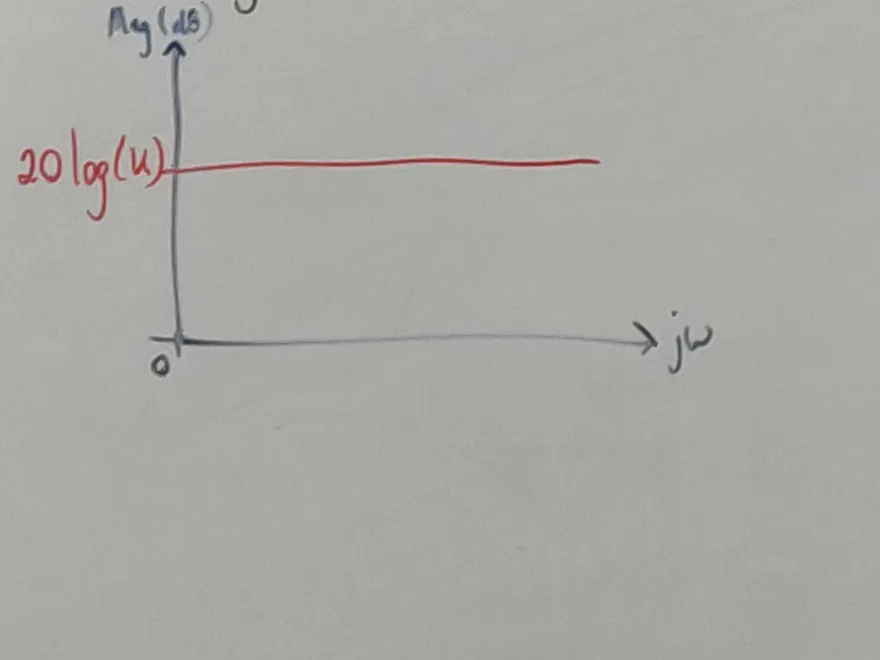 Mag (dB)
20 log(K)
jω
0